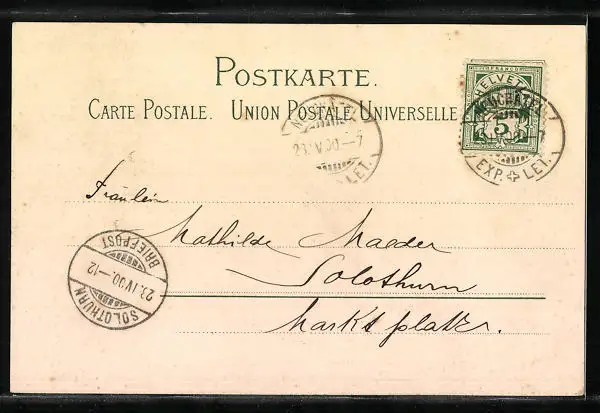 POSTKARTE.
CARTE POSTALE. UNION POSTALE UNIVERSELLE
HELVETIA
FRANCO
5
NEUCHATEL
EXP. LET.
NEUCHATEL
23.IV.00.—7
LET.
Fräulein
Mathilde Maeder
Solothurn
Marktplatz.
BRIEFPOST
23.IV.00.—12
SOLOTHURN